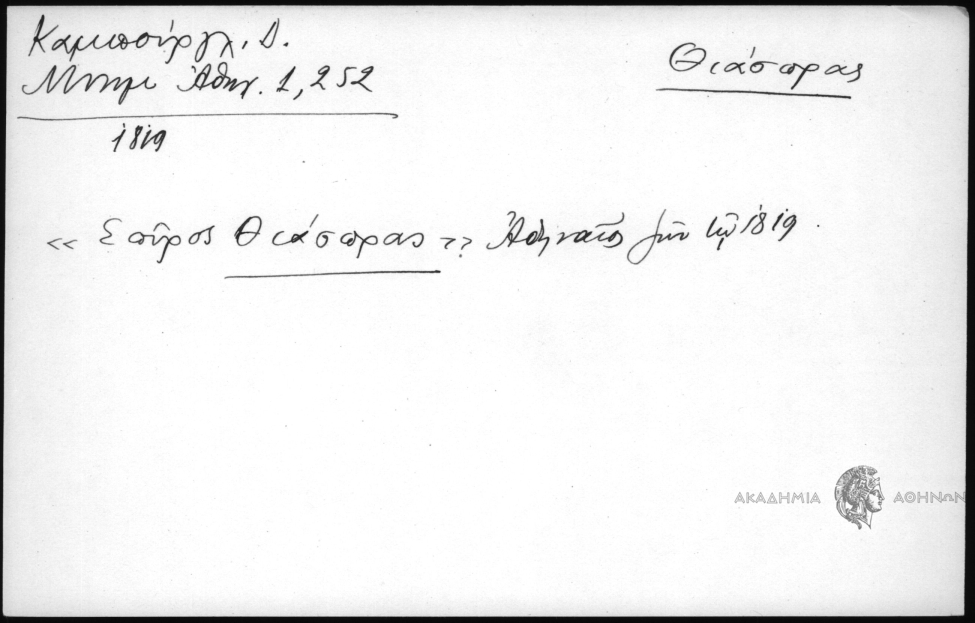 Καμπούργλ. Δ.
Μνημ. Ἀθην. 1, 252
1819
Θιάσπρας
« Σπῦρος Θιάσπρας » Ἀθηναῖος ζῶν τῷ 1819.
ΑΚΑΔΗΜΙΑ ΑΘΗΝΩΝ